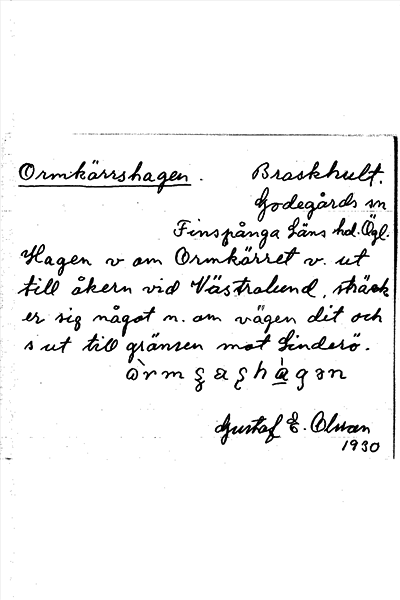 Ormkärrshagen. Braskhult.
Godegårds sn
Finspånga Läns hd. Ögl.
Hagen v om Ormkärret v. ut
till åkern vid Västralund, sträck
er sig något n. om vägen dit och
s ut till gränsen mot Linderö.
Gustaf E. Olson
1930